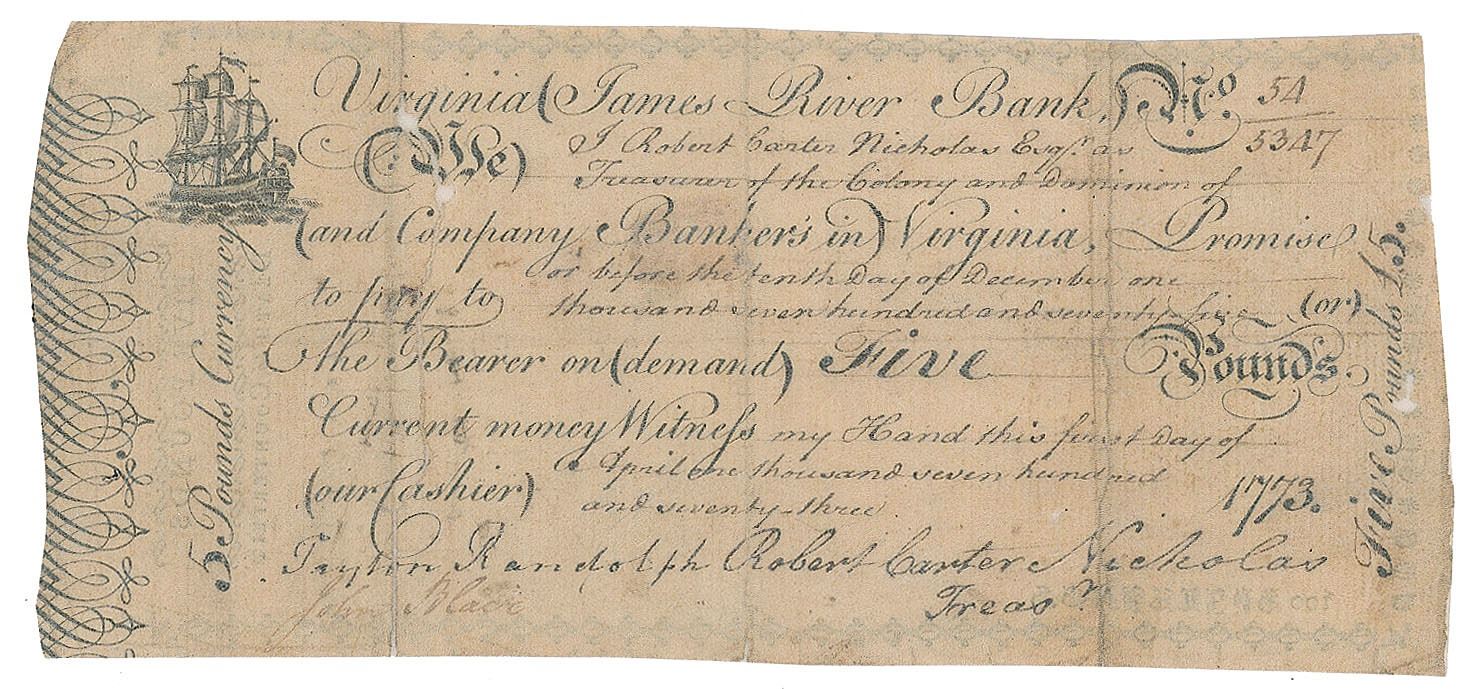 Virginia (James River Bank,) No. 54
5347
(We) I Robert Carter Nicholas Esqr. as
Treasurer of the Colony and Dominion of
(and Company, Bankers in) Virginia, Promise
or before the tenth Day of December one
to pay to thousand seven hundred and seventy five (or)
the Bearer on (demand) Five Pounds.
Current money Witness my Hand this first Day of
April one thousand seven hundred
(our Cashier) and seventy three 1773.
Peyton Randolph Robert Carter Nicholas
John Blair Treasr
5 Pounds Currency
Five Pounds £5.